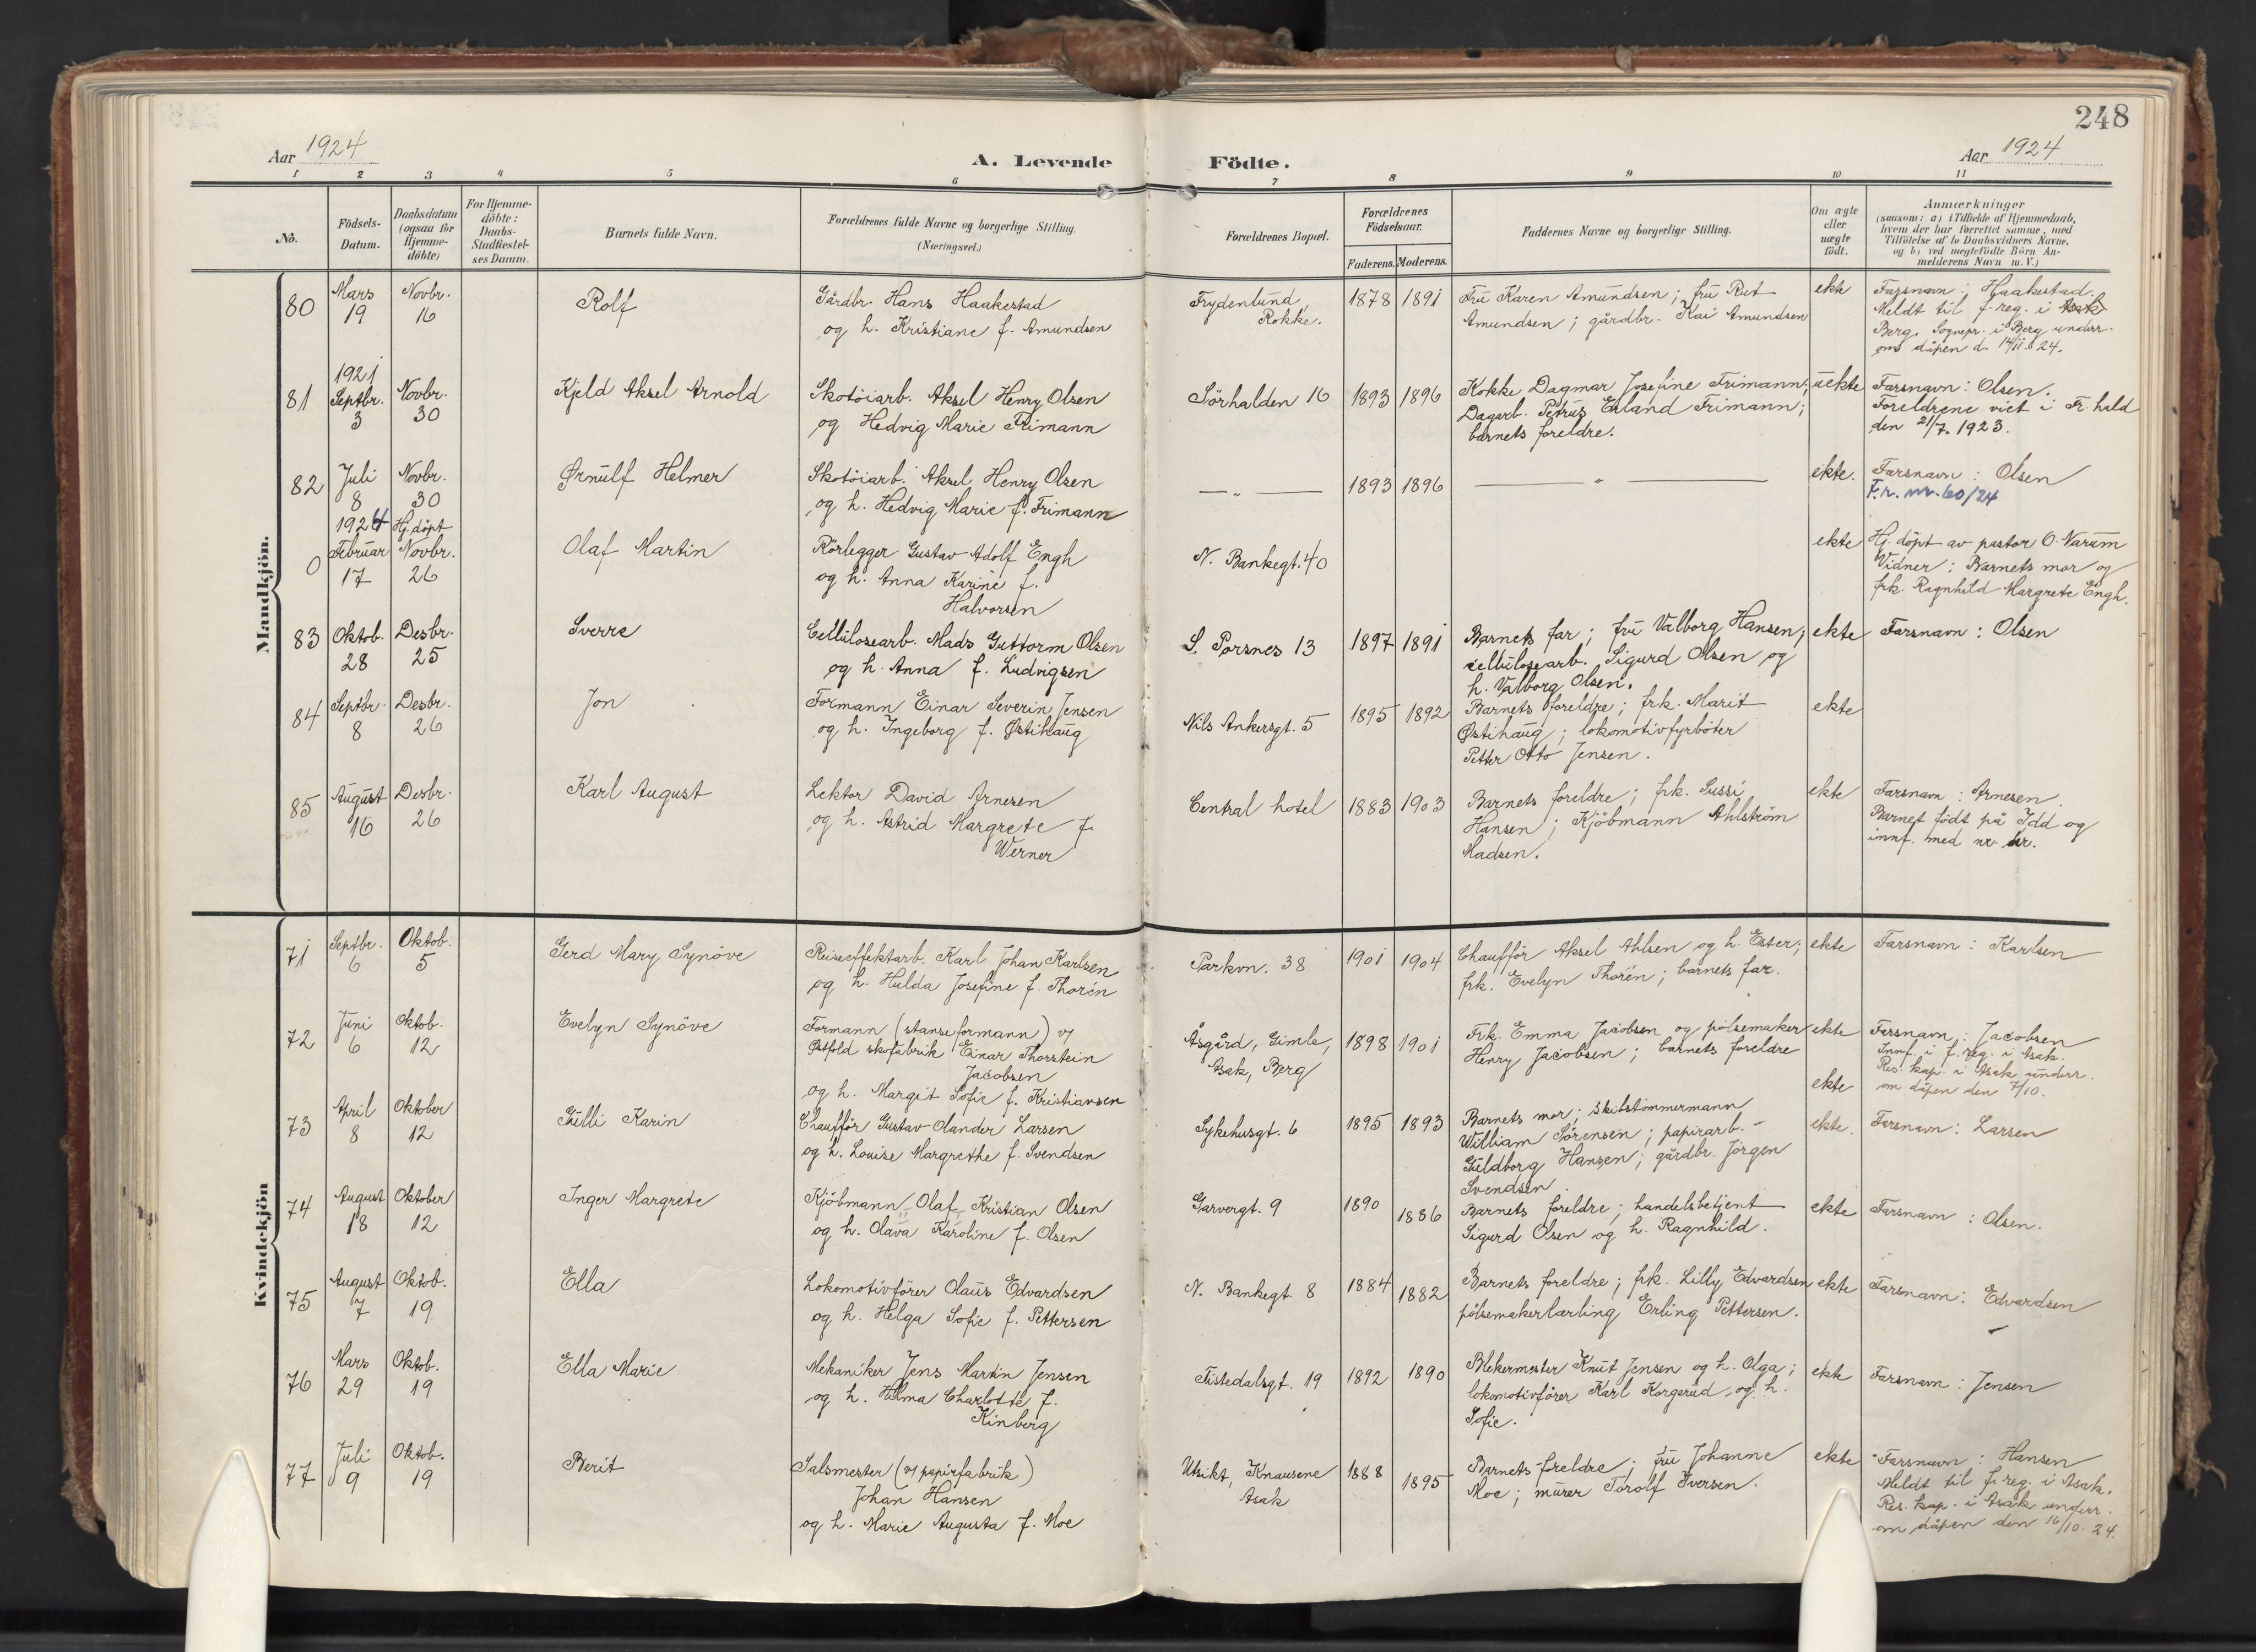 248
Aar 1924
A. Levende Födte.
Aar 1924
1 2 3 4 5 6 7 8 9 10 11
No.
Födsels-Datum.
Daabsdatum (ogsaa for Hjemme-döbte)
For Hjemme-döbte: Daabs-Stadfæstel-ses Datum.
Barnets fulde Navn.
Forældrenes fulde Navne og borgerlige Stilling.
(Næringsvei.)
Forældrenes Bopæl.
Forældrenes Födselsaar.
Faderens. Moderens.
Faddernes Navne og borgerlige Stilling.
Om ægte eller uægte födt.
Anmærkninger
(saasom: a) i Tilfælde af Hjemmedaab,
hvem der har forrettet samme, med
Tilföielse af to Daabsvidners Navne,
og b) ved uegtefödte Börn An-
melderens Navn m. V.)
Mandkjön.
80 Mars 19 Novbr. 16 Rolf
Gårdbr. Hans Haakestad
og h. Kristiane f. Amundsen
Frydenlund, Rokke. 1878 1891
Fru Karen Amundsen; fru Rut
Amundsen; gårdbr. Kai Amundsen
ekte
Farsnavn: Haakestad.
Meldt til f. reg. i Asak
Berg. Sognepr. i Berg underr.
om dåpen d. 14/11 24.
81 1921 Septbr. 3 Novbr. 30 Kjeld Aksel Arnold
Skotöiarb. Aksel Henry Olsen
og Hedvig Marie Frimann
Sörhalden 16 1893 1896
Kokke Dagmar Josefine Frimann;
Dagarb. Petrus Erland Frimann;
barnets foreldre.
uekte
Farsnavn: Olsen.
Foreldrene viet i Fr.hald
den 21/7. 1923.
82 Juli 8 Novbr. 30 Ørnulf Helmer
Skotöiarb. Aksel Henry Olsen
og h. Hedvig Marie f. Frimann
— " — 1893 1896 — " —
ekte.
Farsnavn: Olsen
F.r. nr. 60/24
0 1924 Februar 17 Hj. döpt Novbr. 26 Olaf Martin
Rörlegger Gustav Adolf Engh
og h. Anna Karine f.
Halvorsen
N. Bankegt. 40
ekte
Hj. döpt av pastor O. Narum
Vidner: Barnets mor og
frk. Ragnhild Margrete Engh.
83 Oktob. 28 Desbr. 25 Sverre
Cellulosearb. Mads Guttorm Olsen
og h. Anna f. Ludvigsen
S. Porsnes 13 1897 1891
Barnets far; fru Valborg Hansen;
cellulosearb. Sigurd Olsen og
h. Valborg Olsen.
ekte
Farsnavn: Olsen
84 Septbr. 8 Desbr. 26 Jon
Formann Einar Severin Jensen
og h. Ingeborg f. Østihaug
Nils Ankersgt. 5 1895 1892
Barnets foreldre; frk. Marit
Østihaug; lokomotivfyrböter
Petter Otto Jensen.
ekte
85 August 16 Desbr. 26 Karl August
Lektor David Arnesen
og h. Astrid Margrete f.
Werner
Central hotel 1883 1903
Barnets foreldre; frk. Sussi
Hansen; Kjöbmann Ahlström
Madsen.
ekte
Farsnavn: Arnesen.
Barnet födt på Idd og
innf. med nr. der.
Kvindekjön
71 Septbr. 6 Oktob. 5 Gerd Mary Synöve
Reiseeffektarb. Karl Johan Karlsen
og h. Hulda Josefine f. Thorén
Parkvn. 38 1901 1904
Chaufför Aksel Ahlsen og h. Ester;
frk. Evelyn Thorén; barnets far.
ekte
Farsnavn: Karlsen
72 Juni 6 Oktob. 12 Evelyn Synöve
Formann (stanseformann) v/
Østfold skofabrik Einar Thorstein
Jacobsen
og h. Margit Sofie f. Kristiansen
Åsgård, Gimle,
Asak, Berg 1898 1901
Frk. Emma Jacobsen og pölsemaker
Henry Jacobsen; barnets foreldre
ekte
ekte
Farsnavn: Jacobsen
Innf. i f. reg. i Asak.
Res. kap. i Asak underr.
om dåpen den 7/10.
73 April 8 Oktober 12 Gulli Karin
Chaufför Gustav Olander Larsen
og h. Louise Margrethe f. Svendsen
Sykehusgt. 6 1895 1893
Barnets mor; skibstömmermann
William Sörensen; papirarb.
Guldborg Hansen; gårdbr. Jörgen
Svendsen.
ekte.
Farsnavn: Larsen
74 August 18 Oktober 12 Inger Margrete
Kjöbmann Olaf Kristian Olsen
og h. Olava Karoline f. Olsen
Garvergt. 9 1890 1886
Barnets foreldre; handelsbetjent
Sigurd Olsen og h. Ragnhild.
ekte
Farsnavn: Olsen.
75 August 7 Oktob. 19 Ella
Lokomotivförer Olaus Edvardsen
og h. Helga Sofie f. Pettersen
N. Bankegt. 8 1884 1882
Barnets foreldre; frk. Lilly Edvardsen
pölsemakerlærling Erling Pettersen.
ekte
Farsnavn: Edvardsen
76 Mars 29 Oktob. 19 Ella Marie
Mekaniker Jens Martin Jensen
og h. Hilma Charlotte f.
Kinberg
Tistedalsgt. 19 1892 1890
Blekermester Knut Jensen og h. Olga;
lokomotivförer Karl Korgerud og h.
Sofie.
ekte
Farsnavn: Jensen
77 Juli 9 Oktob. 19 Berit
Salsmester (v/ papirfabrik)
Johan Hansen
og h. Marie Augusta f. Moe
Utsikt, Knausene
Asak 1888 1895
Barnets foreldre; fru Johanne
Moe; murer Torolf Iversen.
ekte
Farsnavn: Hansen
Meldt til f. reg. i Asak.
Res. kap. i Asak underr.
om dåpen den 16/10. 24.